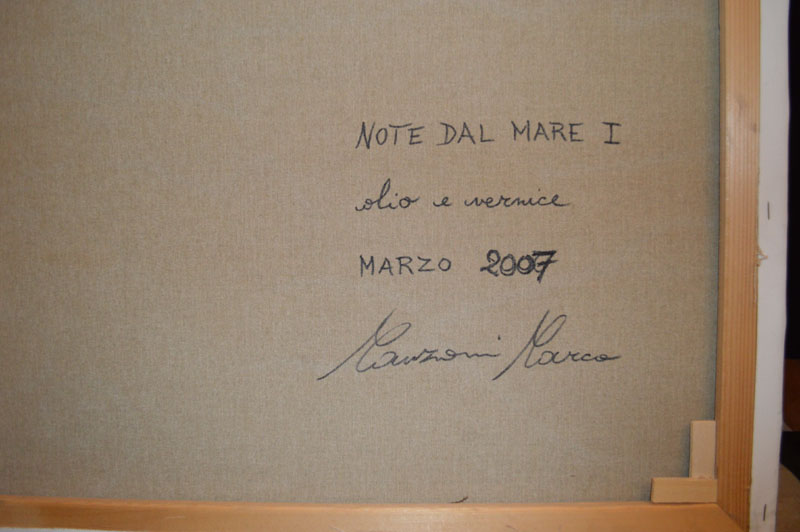 NOTE DAL MARE I
olio e vernice
MARZO 2007
Manzoni Marco